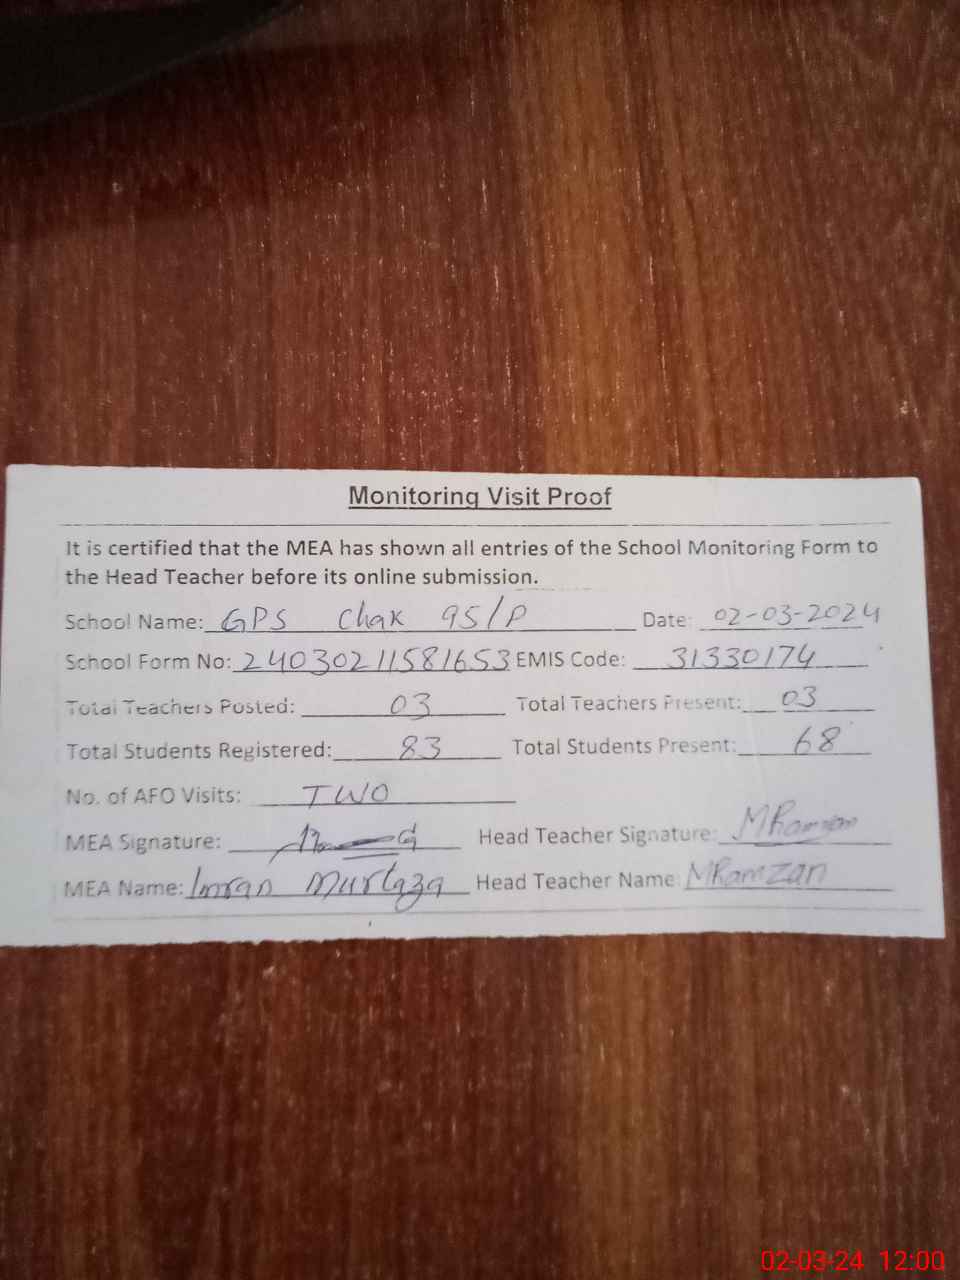 Monitoring Visit Proof
It is certified that the MEA has shown all entries of the School Monitoring Form to
the Head Teacher before its online submission.
School Name: GPS Chak 95/P Date: 02-03-2024
School Form No: 24030211581653 EMIS Code: 31330174
Total Teachers Posted: 03 Total Teachers Present: 03
Total Students Registered: 83 Total Students Present: 68
No. of AFO Visits: TWO
MEA Signature: Head Teacher Signature: MRamzan
MEA Name: Imran Murtaza Head Teacher Name MRamzan
02-03-24 12:00